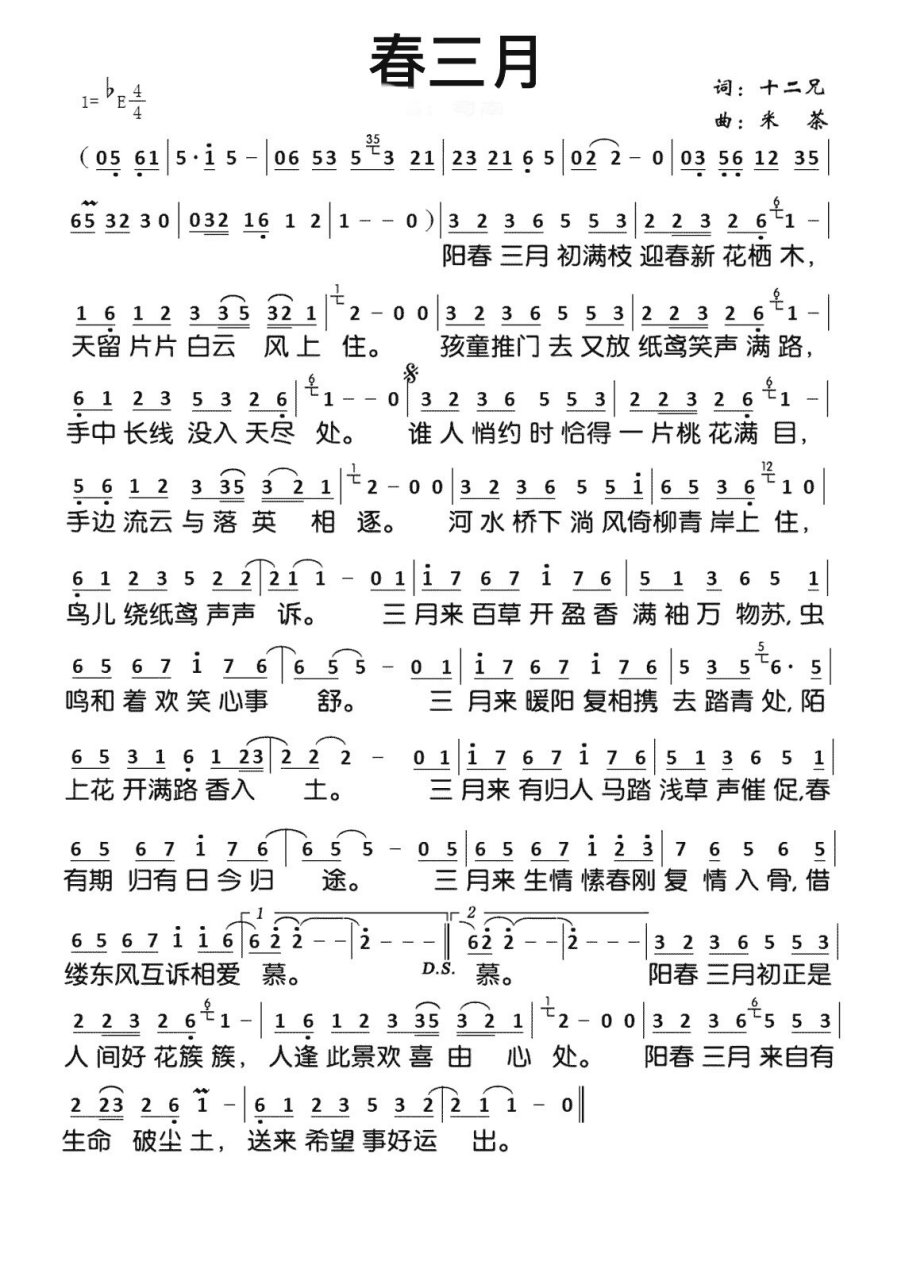 春三月
1=♭E 4/4
词：十二兄
曲：米 茶
(05 61|5·i 5-|06 53 5 35 3 21|23 21 6 5|02 2-0|03 56 12 35|
65 32 30|032 16 1 2|1--0)|3 2 3 6 5 5 3|2 2 3 2 6 6 1-|
阳春 三月 初满枝 迎春新 花栖 木，
1 6 1 2 3 3 5 3 2 1|1 2-0 0|3 2 3 6 5 5 3|2 2 3 2 6 6 1-|
天留 片片 白云 风上 住。 孩童推门 去 又放 纸鸢笑声 满路，
6 1 2 3 5 3 2 6|6 1--0|3 2 3 6 5 5 3|2 2 3 2 6 1-|
手中 长线 没入 天尽 处。 谁人 悄约 时 恰得 一 片桃 花满 目，
5 6 1 2 3 35 3 2 1|1 2-0 0|3 2 3 6 5 5 i|6 5 3 6 12 1 0|
手边 流云 与 落 英 相 逐。 河水 桥下 淌 风倚柳青 岸上 住，
6 1 2 3 5 2 2|2 1 1-0 1|i 7 6 7 i 7 6|5 1 3 6 5 1|
鸟儿 绕纸鸢 声声 诉。 三月来 百草 开 盈香 满 袖万 物苏，虫
6 5 6 7 i 7 6|6 5 5-0 1|i 7 6 7 i 7 6|5 3 5 5 6·5|
鸣和 着 欢 笑 心事 舒。 三 月来 暖阳 复相携 去 踏青 处，陌
6 5 3 1 6 1 23|2 2 2-0 1|i 7 6 7 i 7 6|5 1 3 6 5 1|
上花 开满路 香入 土。 三月来 有归人 马踏 浅草 声催 促，春
6 5 6 7 i 7 6|6 5 5-0 5|6 5 6 7 i 2 3|7 6 5 6 5|
有期 归有 日 今归 途。 三 月来 生情 愫春刚 复 情 入骨，借
1 2
6 5 6 7 i i 6|6 2 2--|2---‖6 2 2--|2---|3 2 3 6 5 5 3|
缕东风互诉相爱 慕。 D.S. 慕。 阳春 三月初正是
2 2 3 2 6 6 1-|1 6 1 2 3 35 3 2 1|1 2-0 0|3 2 3 6 6 5 5 3|
人间好 花簇 簇， 人逢 此景欢 喜 由 心 处。 阳春 三月 来自有
2 23 2 6 1-|6 1 2 3 5 3 2|2 1 1-0‖
生命 破尘 土， 送来 希望 事好运 出。